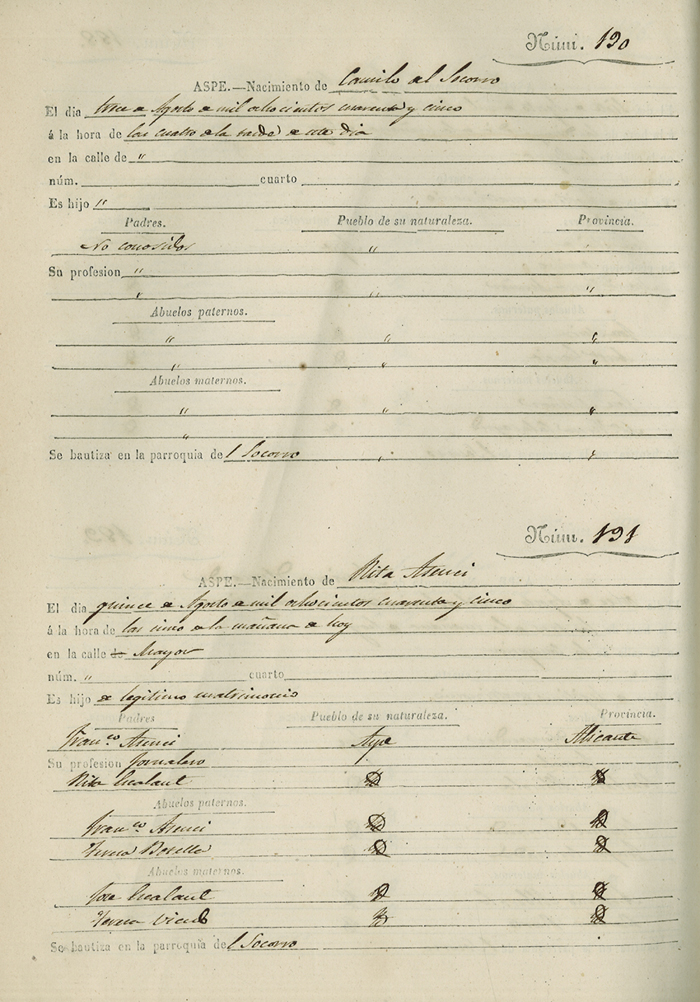 Núm. 190
ASPE.—Nacimiento de Camilo del Socorro
El dia trece de Agosto de mil ochocientos cuarenta y cinco
á la hora de las cuatro de la tarde de este dia
en la calle de "
núm. cuarto
Es hijo "
Padres. Pueblo de su naturaleza. Provincia.
No conosidos "
Su profesion "
" " "
Abuelos paternos.
" " "
" " "
Abuelos maternos.
" " "
"
Se bautiza en la parroquia del Socorro " "
Núm. 191
ASPE.—Nacimiento de Rita Asenci
El dia quince de Agosto de mil ochocientos cuarenta y cinco
á la hora de las cinco de la mañana de hoy
en la calle de Mayor
núm. " cuarto
Es hijo de legitimo matrimonio
Padres Pueblo de su naturaleza. Provincia.
Franco. Asenci Aspe Alicante
Su profesion Jornalero
Rita
Abuelos paternos.
Franco. Asenci
Teresa Botella
Abuelos maternos.
Jose
Teresa
Se bautiza en la parroquia del Socorro